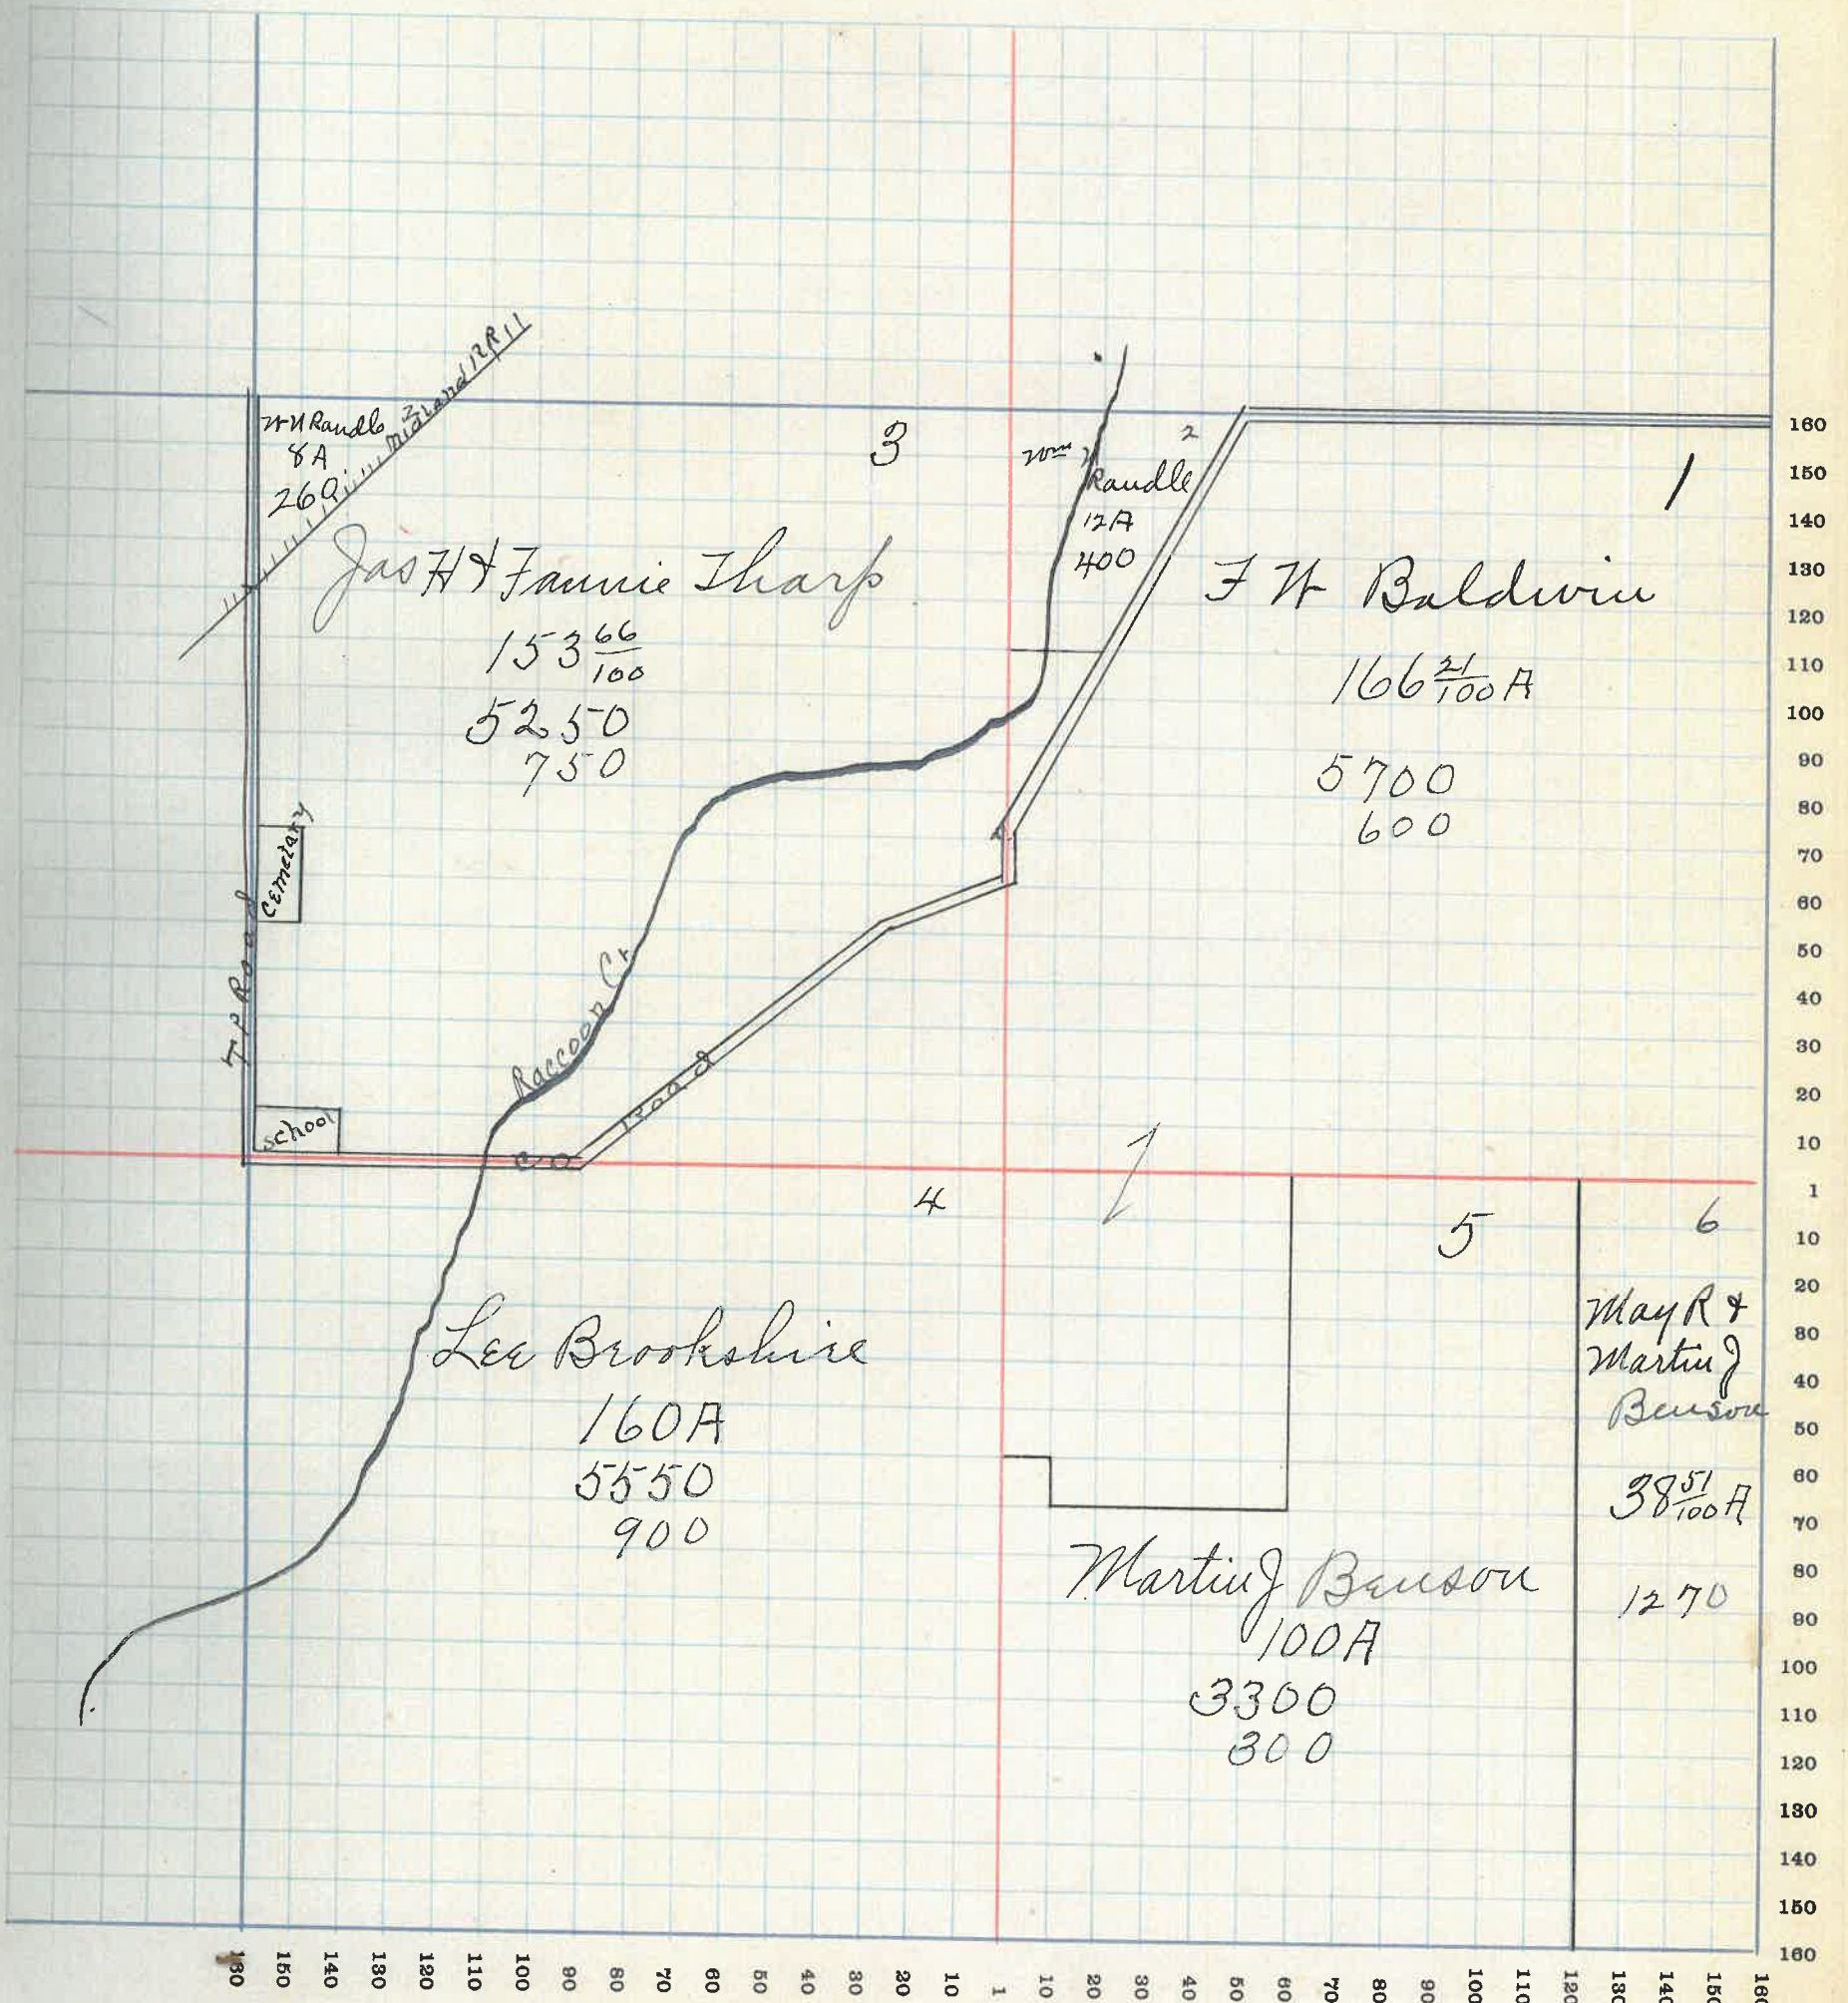 W N Randle
8A
260
Midland RR
3
2
Wm N
Randle
12A
400
1
Jas H & Fannie Tharp
153 66/100
5250
750
F W Baldwin
166 21/100 A
5700
600
Cemetary
T P Road
Raccoon Cr
school
Co Road
4
1
5
6
Lee Brookshire
160A
5550
900
May R &
Martin J
Benson
38 51/100 A
1270
Martin J Benson
100A
3300
300
160
150
140
130
120
110
100
90
80
70
60
50
40
30
20
10
1
10
20
30
40
50
60
70
80
90
100
110
120
130
140
150
160
160 150 140 130 120 110 100 90 80 70 60 50 40 30 20 10 1 10 20 30 40 50 60 70 80 90 100 110 120 130 140 150 160